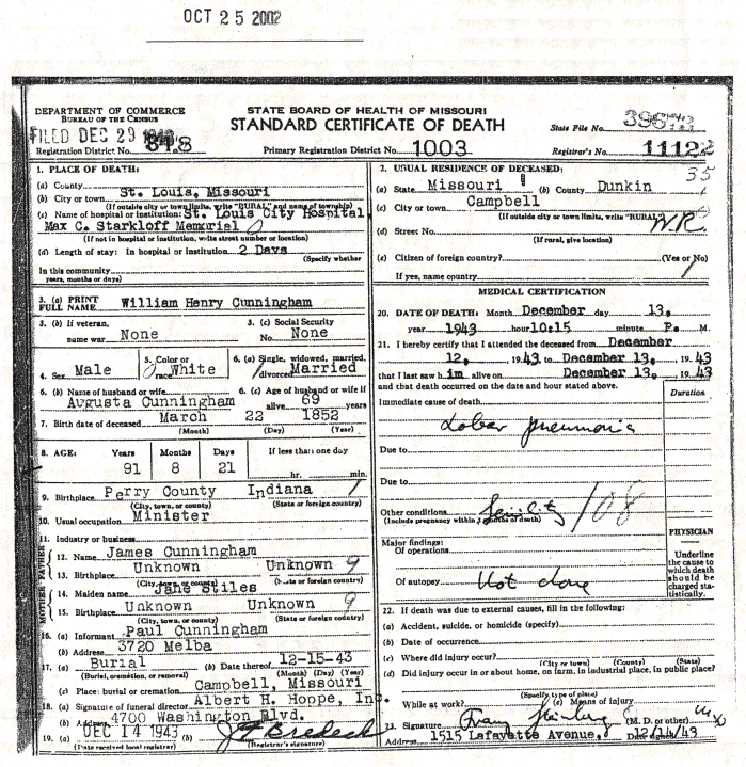 OCT 25 2002
DEPARTMENT OF COMMERCE
BUREAU OF THE CENSUS
STATE BOARD OF HEALTH OF MISSOURI
STANDARD CERTIFICATE OF DEATH
State File No.
FILED DEC 29
Registration District No. 848
Primary Registration District No. 1003
Registrar's No. 11122
1. PLACE OF DEATH:
(a) County
(b) City or town St. Louis, Missouri
(If outside city or town limits, write "RURAL" and name of township)
(c) Name of hospital or institution: St. Louis City Hospital
Max C. Starkloff Memorial
(If not in hospital or institution, write street number or location)
(d) Length of stay: In hospital or institution 2 Days
(Specify whether
In this community
years, months or days)
2. USUAL RESIDENCE OF DECEASED:
35
(a) State Missouri (b) County Dunkin
(c) City or town Campbell
(If outside city or town limits, write "RURAL")
(d) Street No. N.R.
(If rural, give location)
(e) Citizen of foreign country? (Yes or No)
If yes, name country
3. (a) PRINT FULL NAME William Henry Cunningham
3. (b) If veteran, name war None
3. (c) Social Security No. None
4. Sex Male
5. Color or race White
6. (a) Single, widowed, married, divorced Married
6. (b) Name of husband or wife Augusta Cunningham
6. (c) Age of husband or wife if alive 69 years
7. Birth date of deceased March 22 1852
(Month) (Day) (Year)
8. AGE: Years Months Days If less than one day
91 8 21 hr. min.
9. Birthplace Perry County Indiana
(City, town, or county) (State or foreign country)
10. Usual occupation Minister
11. Industry or business
FATHER
12. Name James Cunningham
13. Birthplace Unknown Unknown 9
(City, town, or county) (State or foreign country)
MOTHER
14. Maiden name Jane Stiles
15. Birthplace Unknown Unknown 9
(City, town, or county) (State or foreign country)
16. (a) Informant Paul Cunningham
(b) Address 3720 Melba
17. (a) Burial (b) Date thereof 12-15-43
(Burial, cremation, or removal) (Month) (Day) (Year)
(c) Place: burial or cremation Campbell, Missouri
18. (a) Signature of funeral director Albert H. Hoppe, Inc.
(b) Address 4700 Washington Blvd.
19. (a) DEC 14 1943 (b) J. F. Bredeck
(Date received local registrar) (Registrar's signature)
MEDICAL CERTIFICATION
20. DATE OF DEATH: Month December day 13,
year 1943 hour 10:15 minute P. M.
21. I hereby certify that I attended the deceased from December
12, 1943 to December 13, 1943
that I last saw him alive on December 13, 1943
and that death occurred on the date and hour stated above.
Duration
Immediate cause of death
Lobar pneumonia
Due to
Due to
Other conditions Senility 108
(Include pregnancy within 3 months of death)
Major findings:
Of operations
Of autopsy Not done
PHYSICIAN
Underline the cause to which death should be charged statistically.
22. If death was due to external causes, fill in the following:
(a) Accident, suicide, or homicide (specify)
(b) Date of occurrence
(c) Where did injury occur?
(City or town) (County) (State)
(d) Did injury occur in or about home, on farm, in industrial place, in public place?
(Specify type of place)
While at work? (e) Means of injury
23. Signature (M. D. or other)
Address 1515 Lafayette Avenue, Date signed 12/14/43